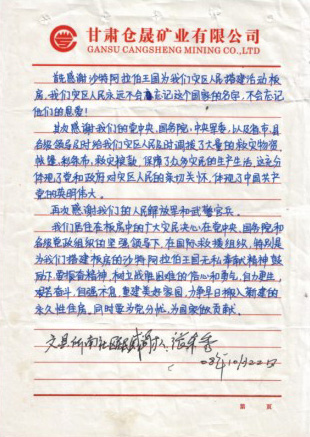 甘肃仓晟矿业有限公司
GANSU CANGSHENG MINING CO.,LTD
首先感谢沙特阿拉伯王国为我们灾区人民搭建活动板
房，我们灾区人民永远不会忘记这个国家的名字，不会忘记
他们的恩爱！
其次感谢我们的党中央、国务院、中央军委，以及省市县
各级领导及时给我们灾区人民及时调拨了大量的救灾物资。
帐篷、彩条布、救灾棉被，保障了広大灾民的生产生活，这充分
体现了党和政府对灾区人民的亲切关怀，体现了中国共产
党的英明伟大。
再次感谢我们的人民解放军和武警官兵。
我们居住在板房中的广大灾民决心在党中央、国务院和
各级党政组织的坚强领导下，在国际救援组织，特别是
为我们搭建板房的沙特阿拉伯王国无私奉献精神鼓
励下，要振奋精神，树立战胜困难的信心和勇气，自力更生，
艰苦奋斗，自强不息，重建美好家园，力争早日搬入新建的
永久性住房，同时要为党分忧，为国家做贡献。
文县
08年10月22日
第 页